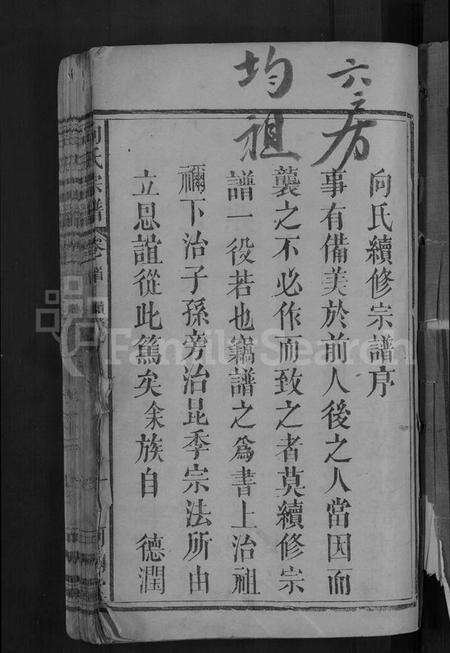 六房
均祖
向氏續修宗譜序
事有備美於前人後之人當因而
襲之不必作而致之者莫續修宗
譜一役若也竊譜之為書上治祖
禰下治子孫旁治昆季宗法所由
立恩誼從此篤矣余族自　德潤
向氏宗譜
卷之首
FamilySearch